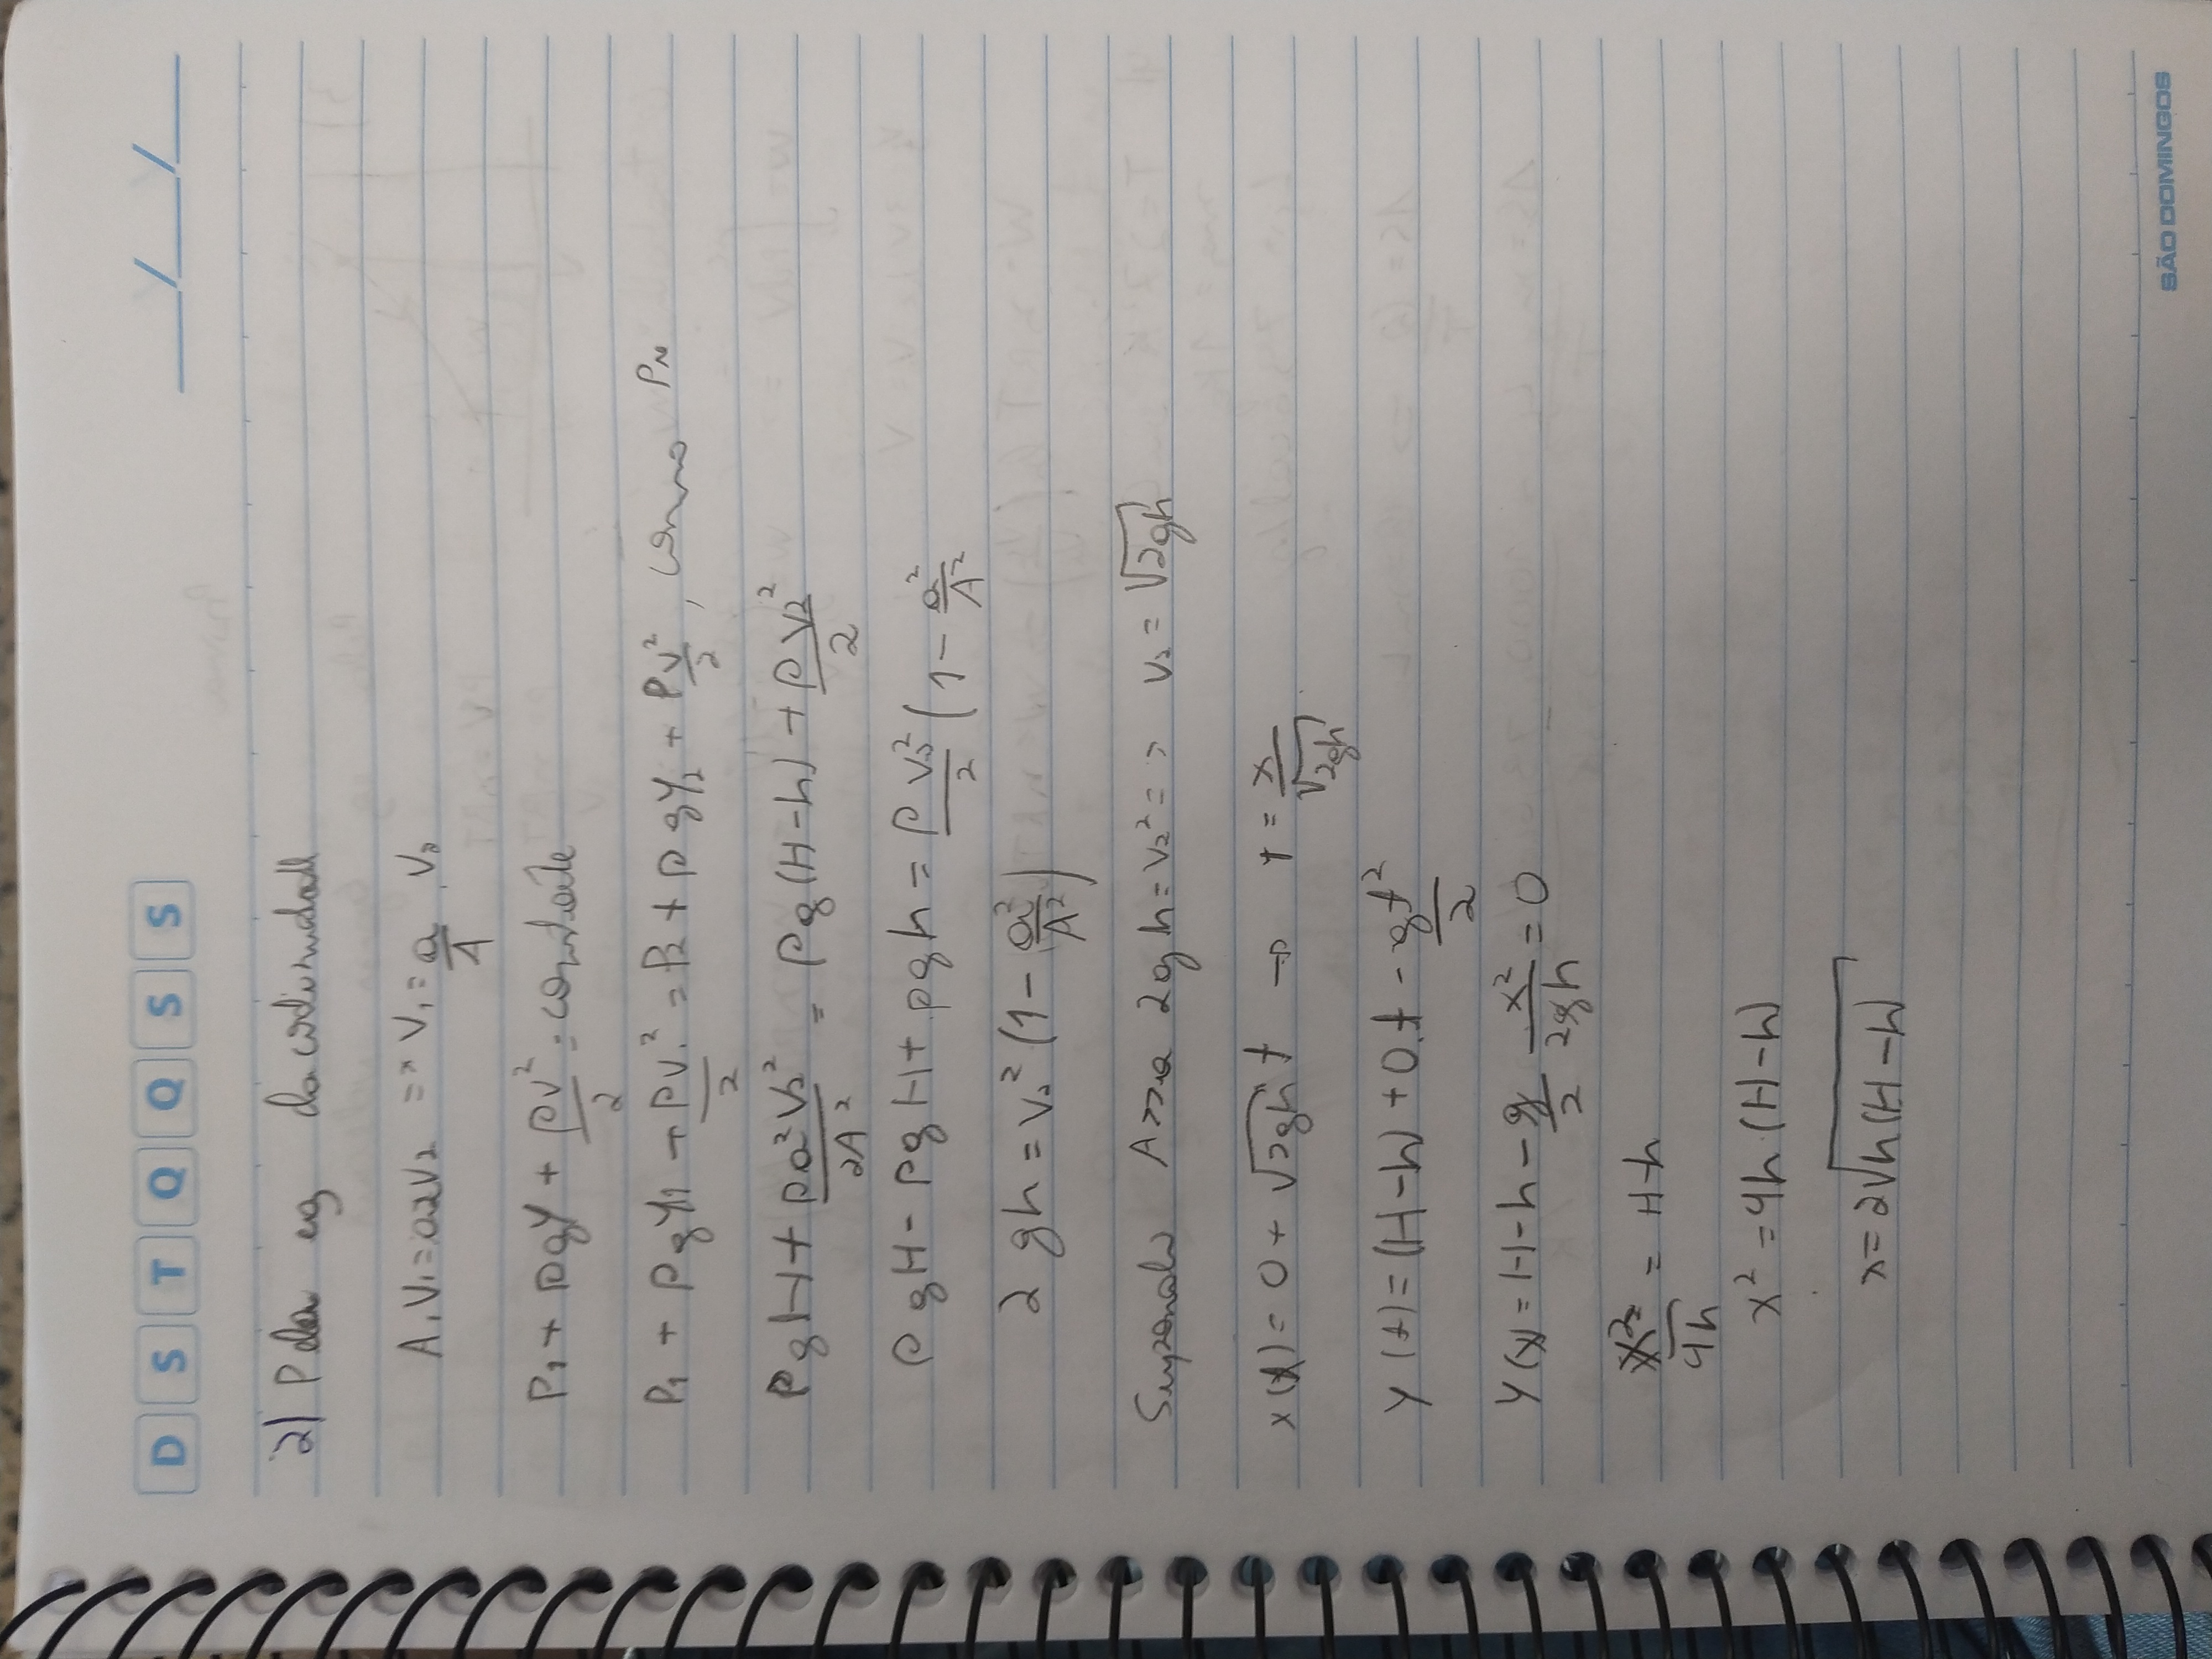 D S T Q Q S S
__/__/__
2) Pela eq da continuidade
A₁V₁=a2V2 => V₁=a/A . V₂
P₁ + ρgy + ρv²/2 = constante
P₁ + ρgy1 + ρv₁²/2 = P₂ + ρgy₂ + ρv²/2, como
ρgH + ρa²V₂²/2A² = ρg(H-h) + ρV₂²/2
ρgH - ρgH + ρgh = ρV₂²/2 (1 - a²/A²
2gh = V₂² (1 - a²/A²)
Supondo A>>a 2gh = V₂² => V₂ = √2gh
x(t) = 0 + √2gh t → t = x/√2gh
y(t) = (H-h) + 0.t - gt²/2
y(x) = H-h - g/2 x²/2gh = 0
x²/4h = H-h
x² = 4h(H-h)
x = 2√h(H-h)
SÃO DOMINGOS